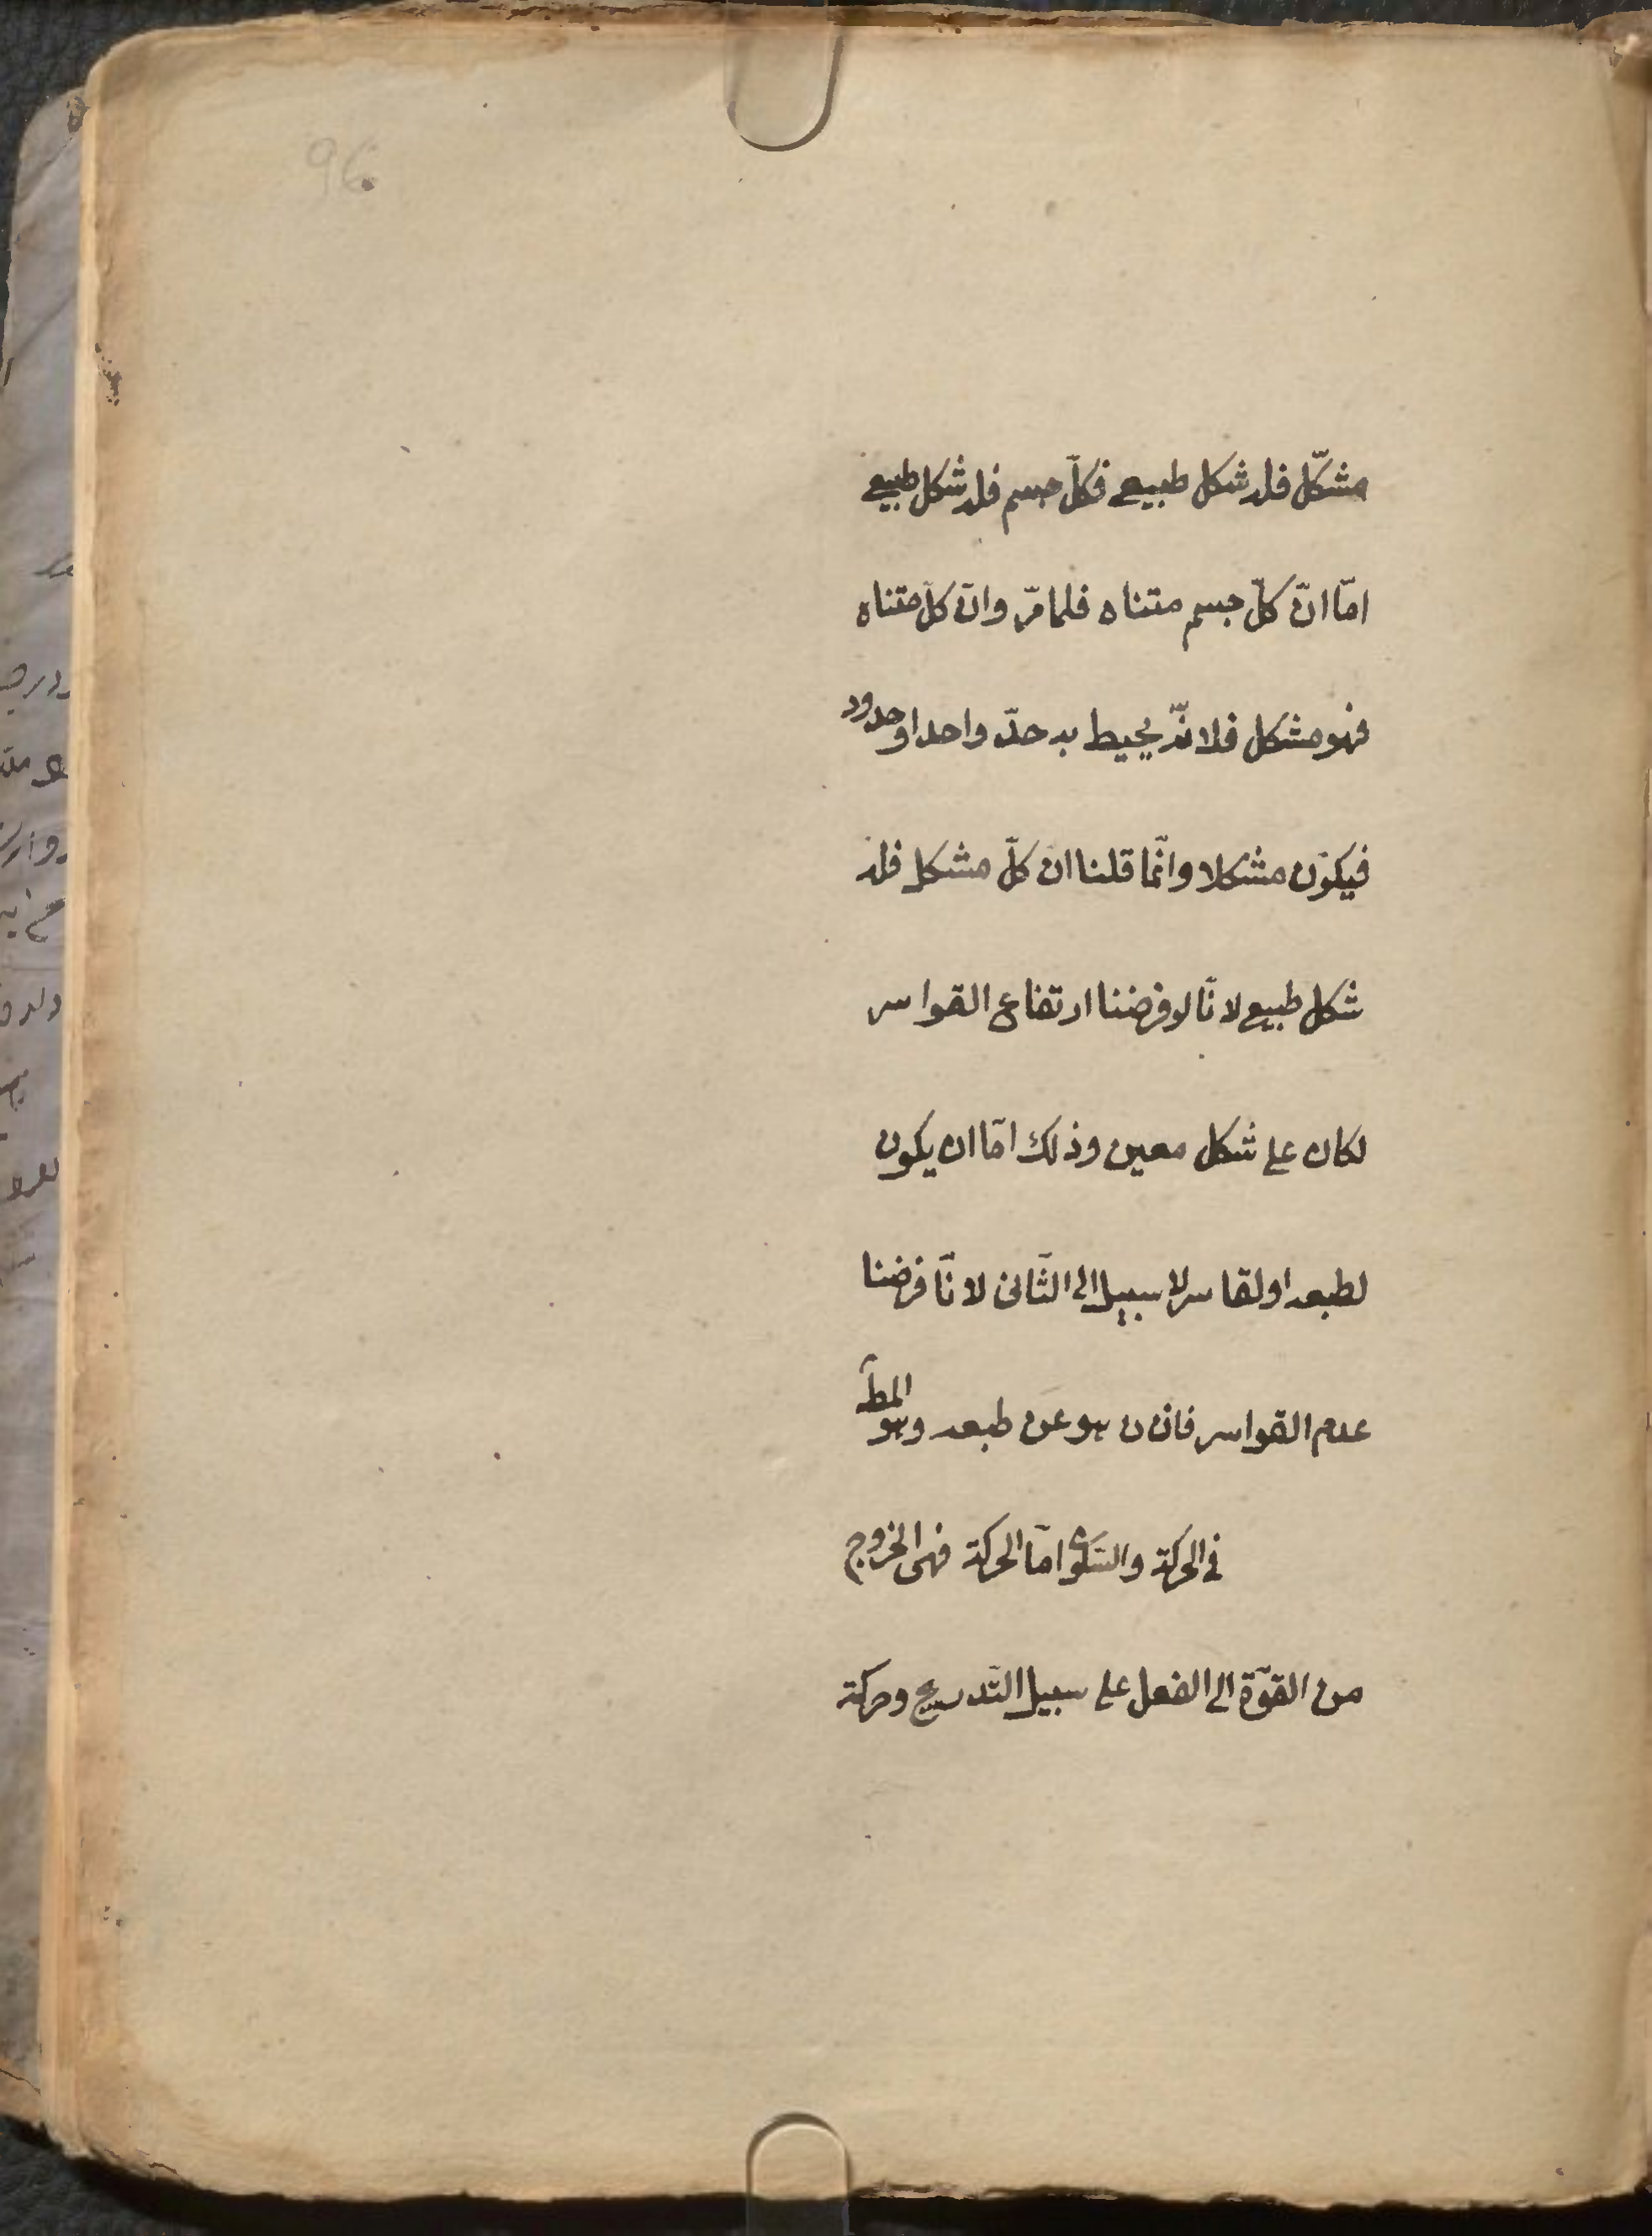 96
مشكّل فله شكل طبيعي فكلّ جسم فله شكل طبيعي
امّا انّ كلّ جسم متناه فلما مرّ وانّ كلّ متناه
فهو مشكل فلانّه يحيط به حدّ واحد او حدود
فيكون مشكلا وانّما قلنا ان كلّ مشكل فله
شكل طبيعي لانّا لو فرضنا ارتفاع القواسر
لكان على شكل معين وذلك امّا ان يكون
لطبعه او لقاسر لا سبيل الى الثّانى لانّا فرضنا
عدم القواسر فاذن هو عن طبعه وهو المط
في الحركة والسّكون امّا الحركة فهى الخروج
من القوّة الى الفعل على سبيل التّدريج وحركة